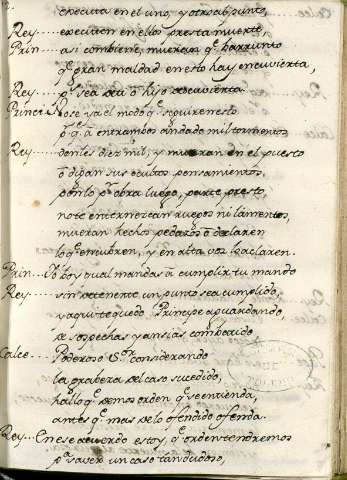 executa en el uno, y otro al punto,
Rey.... executen en ellos presta muerte
Prin... asi combiene, mueran qe barrunto
qe gran maldad en esto hay encuvierta,
Rey.... pr qe sea
Prince. Yo se ya el modo, qe seguiremos
pr qe à entrambos an dado mil tormentos,
Rey.... denles diez mil, y mueran en el puesto
ò digan sus ocultos pensamientos,
ponlo pr obra luego, parte presto,
no te enternezcan ruegos ni lamentos,
mueran hechos pedazos ò declaren
lo qe encubren, y en alta voz
Prin... Yo boy qual mandas à cumplir tu mando
Rey.... sin un punto sea cumplido,
y aqui te quedo Principe aguardando,
de sospechas y ansias combatido
Calce... Poderoso Sor. considerando
la grabeza del caso sucedido,
hallo qe demos orden qe se entienda,
antes qe mas delo ofendido ofenda.
Rey.... En ese acuerdo estoy, qe orden tendremos
pa saver un caso tan dudoso,